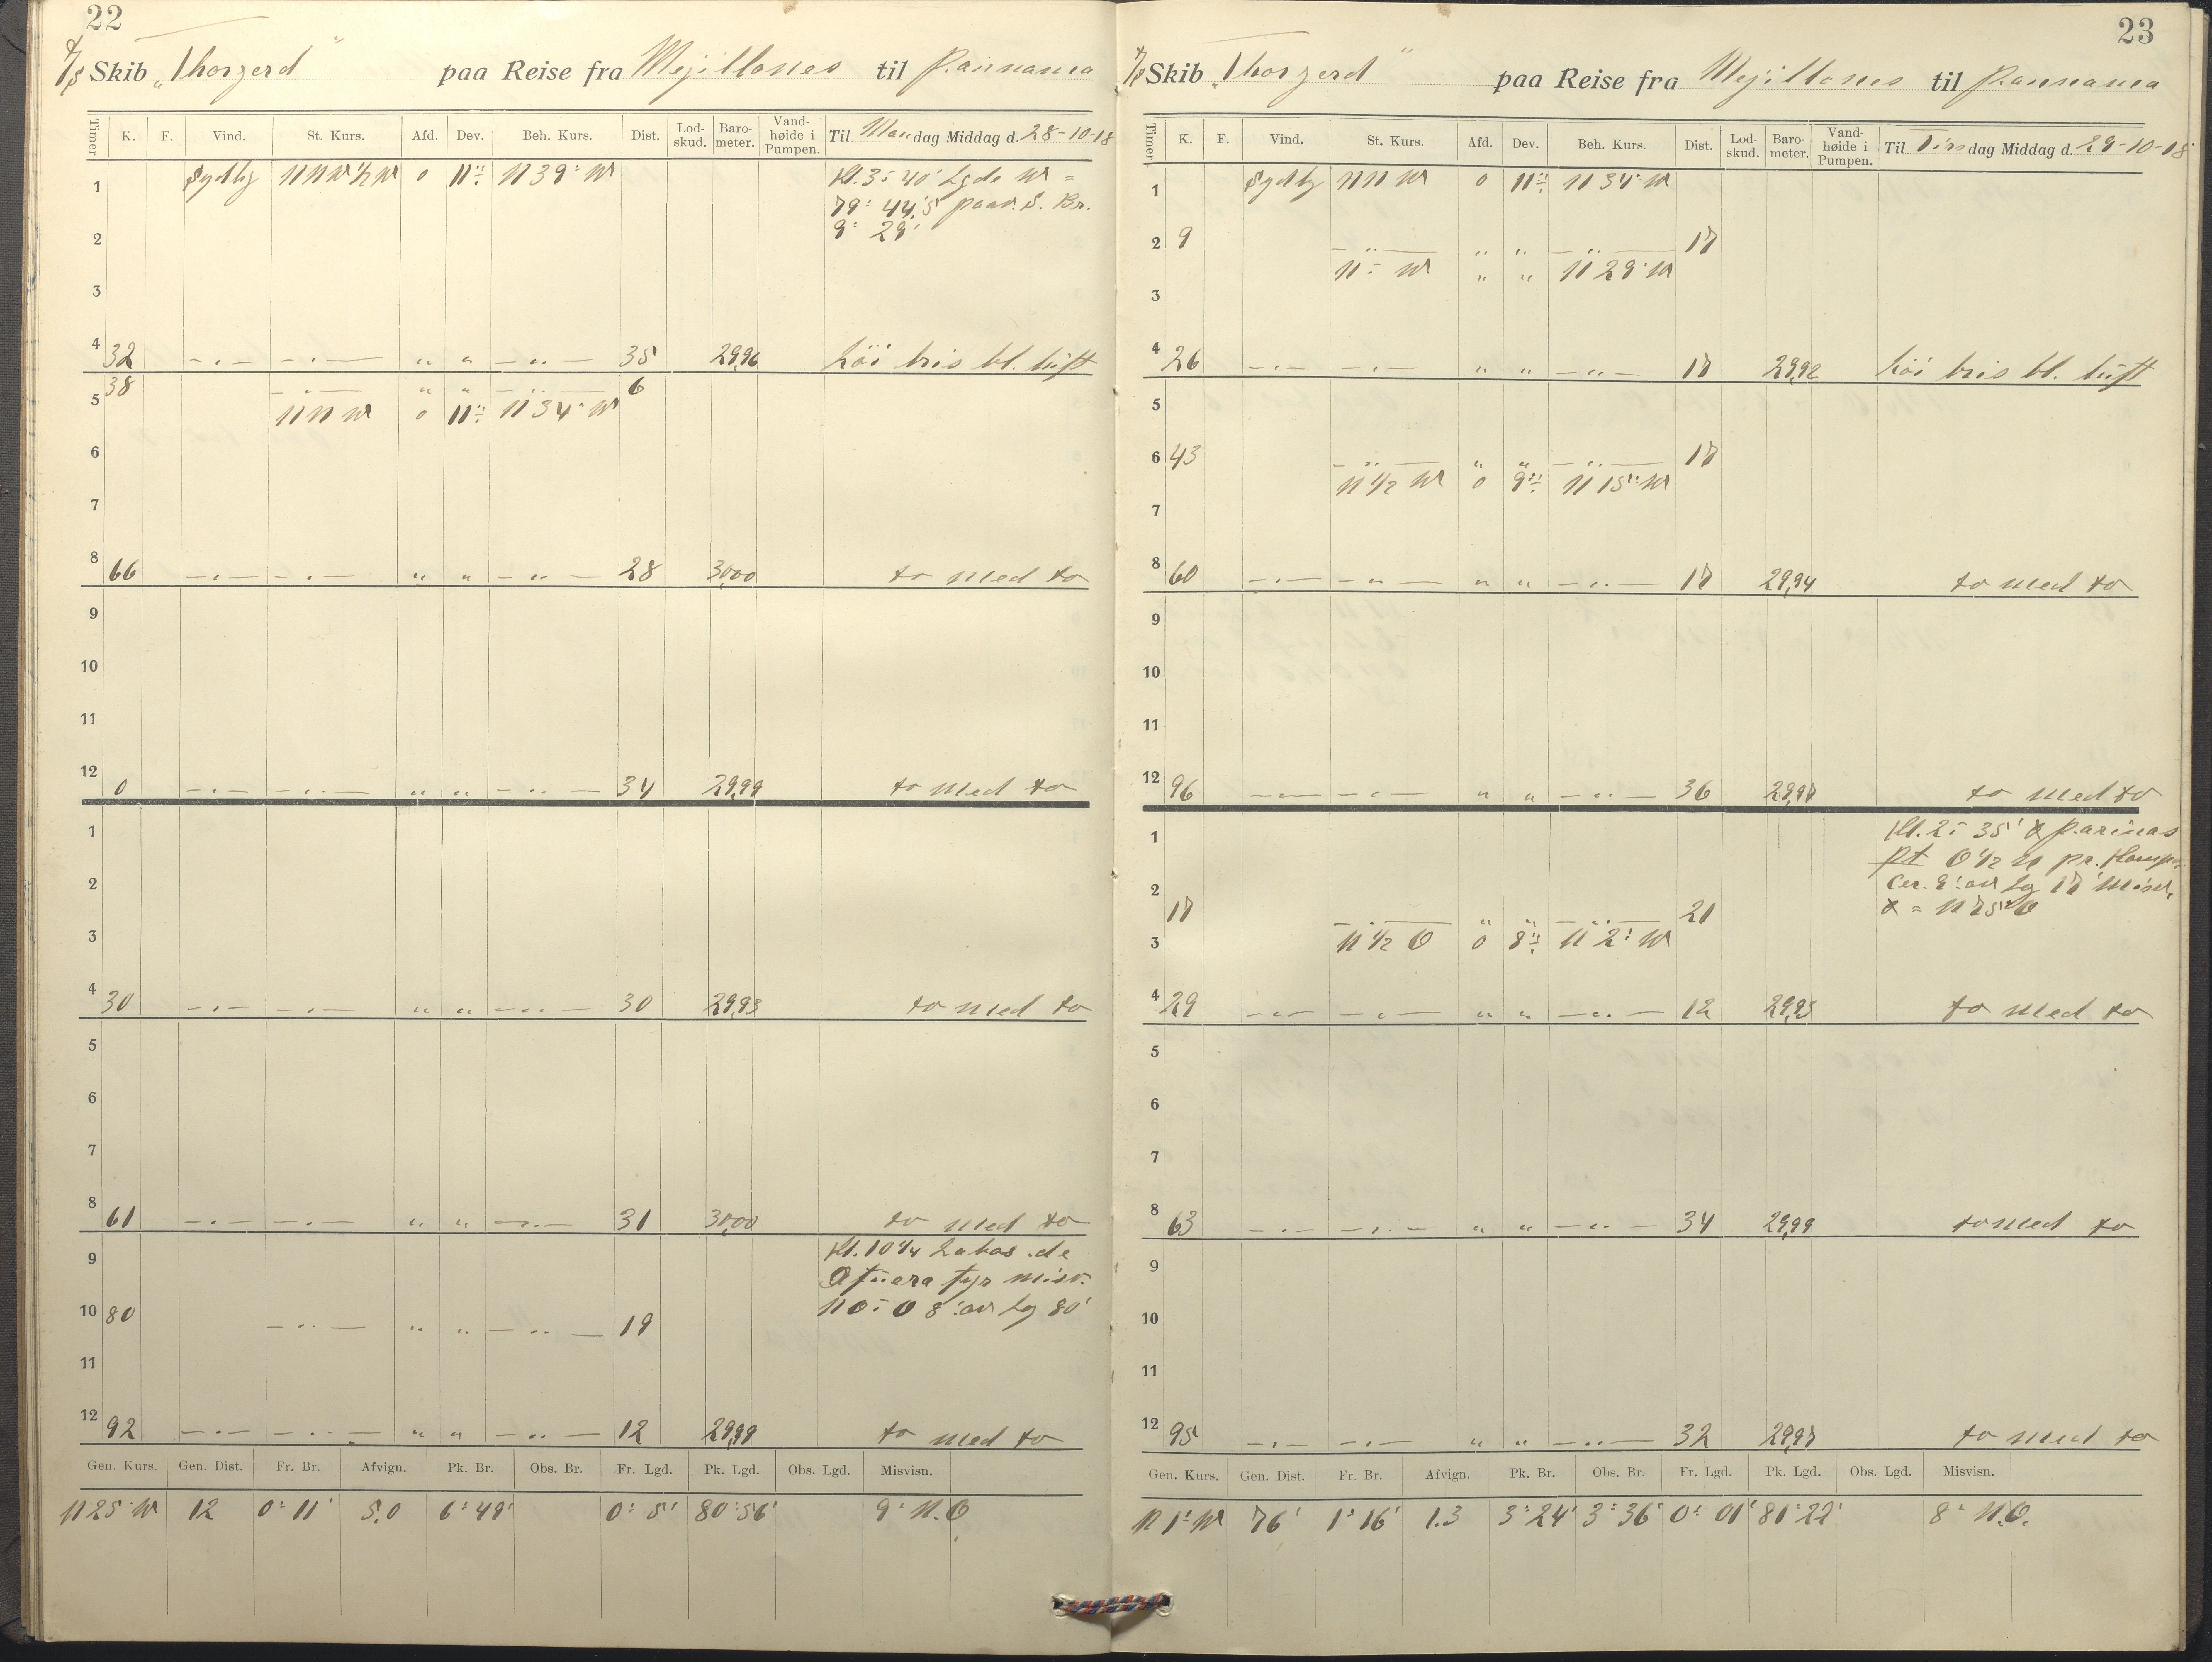 22
S/S Skib „Thorgerd" paa Reise fra Mejillones til Pannama
Timer K. F. Vind. St. Kurs. Afd. Dev. Beh. Kurs. Dist. Lod-skud. Baro-meter. Vand-høide i Pumpen. Til Mandag Middag d. 28-10-18
1 Sydlig NNW½W 0 11° N 39° W Kl. 3 40' Lgde W =
79° 44,5' paav. S. Br.
2 9° 29'
3
4 32 — . — — . — " " — " — 35 29,96 Löi bris bl. lüft
38 — " — " " — " — 6
5 NNW 0 11° N 34° W
6
7
8 66 — . — — . — " " — " — 28 30,00 do med do
9
10
11
12 0 — . — — " — " " — " — 34 29,99 do med do
1
2
3
4 30 — . — — . — " " — " — 30 29,93 do med do
5
6
7
8 61 — . — — . — " " — " — 31 30,00 do med do
9 Kl. 10¼ Labos de
Afuera fyr misv.
10 80 — " — " " — " — 19 NO-O 8' av Lg 80'
11
12 92 — . — — " — " " — " — 12 29,99 do med do
Gen. Kurs. Gen. Dist. Fr. Br. Afvign. Pk. Br. Obs. Br. Fr. Lgd. Pk. Lgd. Obs. Lgd. Misvisn.
N 25° W 12 0° 11' 5,0 6° 49' 0° 5' 80° 56' 9° N.O
23
S/S Skib „Thorgerd" paa Reise fra Mejillones til Pannama
Timer K. F. Vind. St. Kurs. Afd. Dev. Beh. Kurs. Dist. Lod-skud. Baro-meter. Vand-høide i Pumpen. Til Tirsdag Middag d. 29-10-18
1 Sydlig NNW 0 11° N 34° W
2 9 — " — " " — " — 17
N - W " " N 29° W
3
4 26 — . — — . — " " — " — 17 29,92 Löi bris bl. lüft
5
6 43 — " — " " — " — 17
N ½ W 0 9° N 15° W
7
8 60 — . — — " — " " — " — 17 29,94 do med do
9
10
11
12 96 — . — — . — " " — " — 36 29,97 do med do
1 Kl. 2 35' Parinas
Pt O½N pr. Komp.
2 17 — " — " " — " — 21
N 75° O
3 N ½ O 0 8° N 2° W
4 29 — . — — . — " " — " — 12 29,95 do med do
5
6
7
8 63 — . — — . — " " — " — 34 29,99 do med do
9
10
11
12 95 — . — — . — " " — " — 32 29,97 do med do
Gen. Kurs. Gen. Dist. Fr. Br. Afvign. Pk. Br. Obs. Br. Fr. Lgd. Pk. Lgd. Obs. Lgd. Misvisn.
N 1° W 76' 1° 16' 1.3 3° 24' 3° 36' 0° 01' 81° 22' 8° N.O.